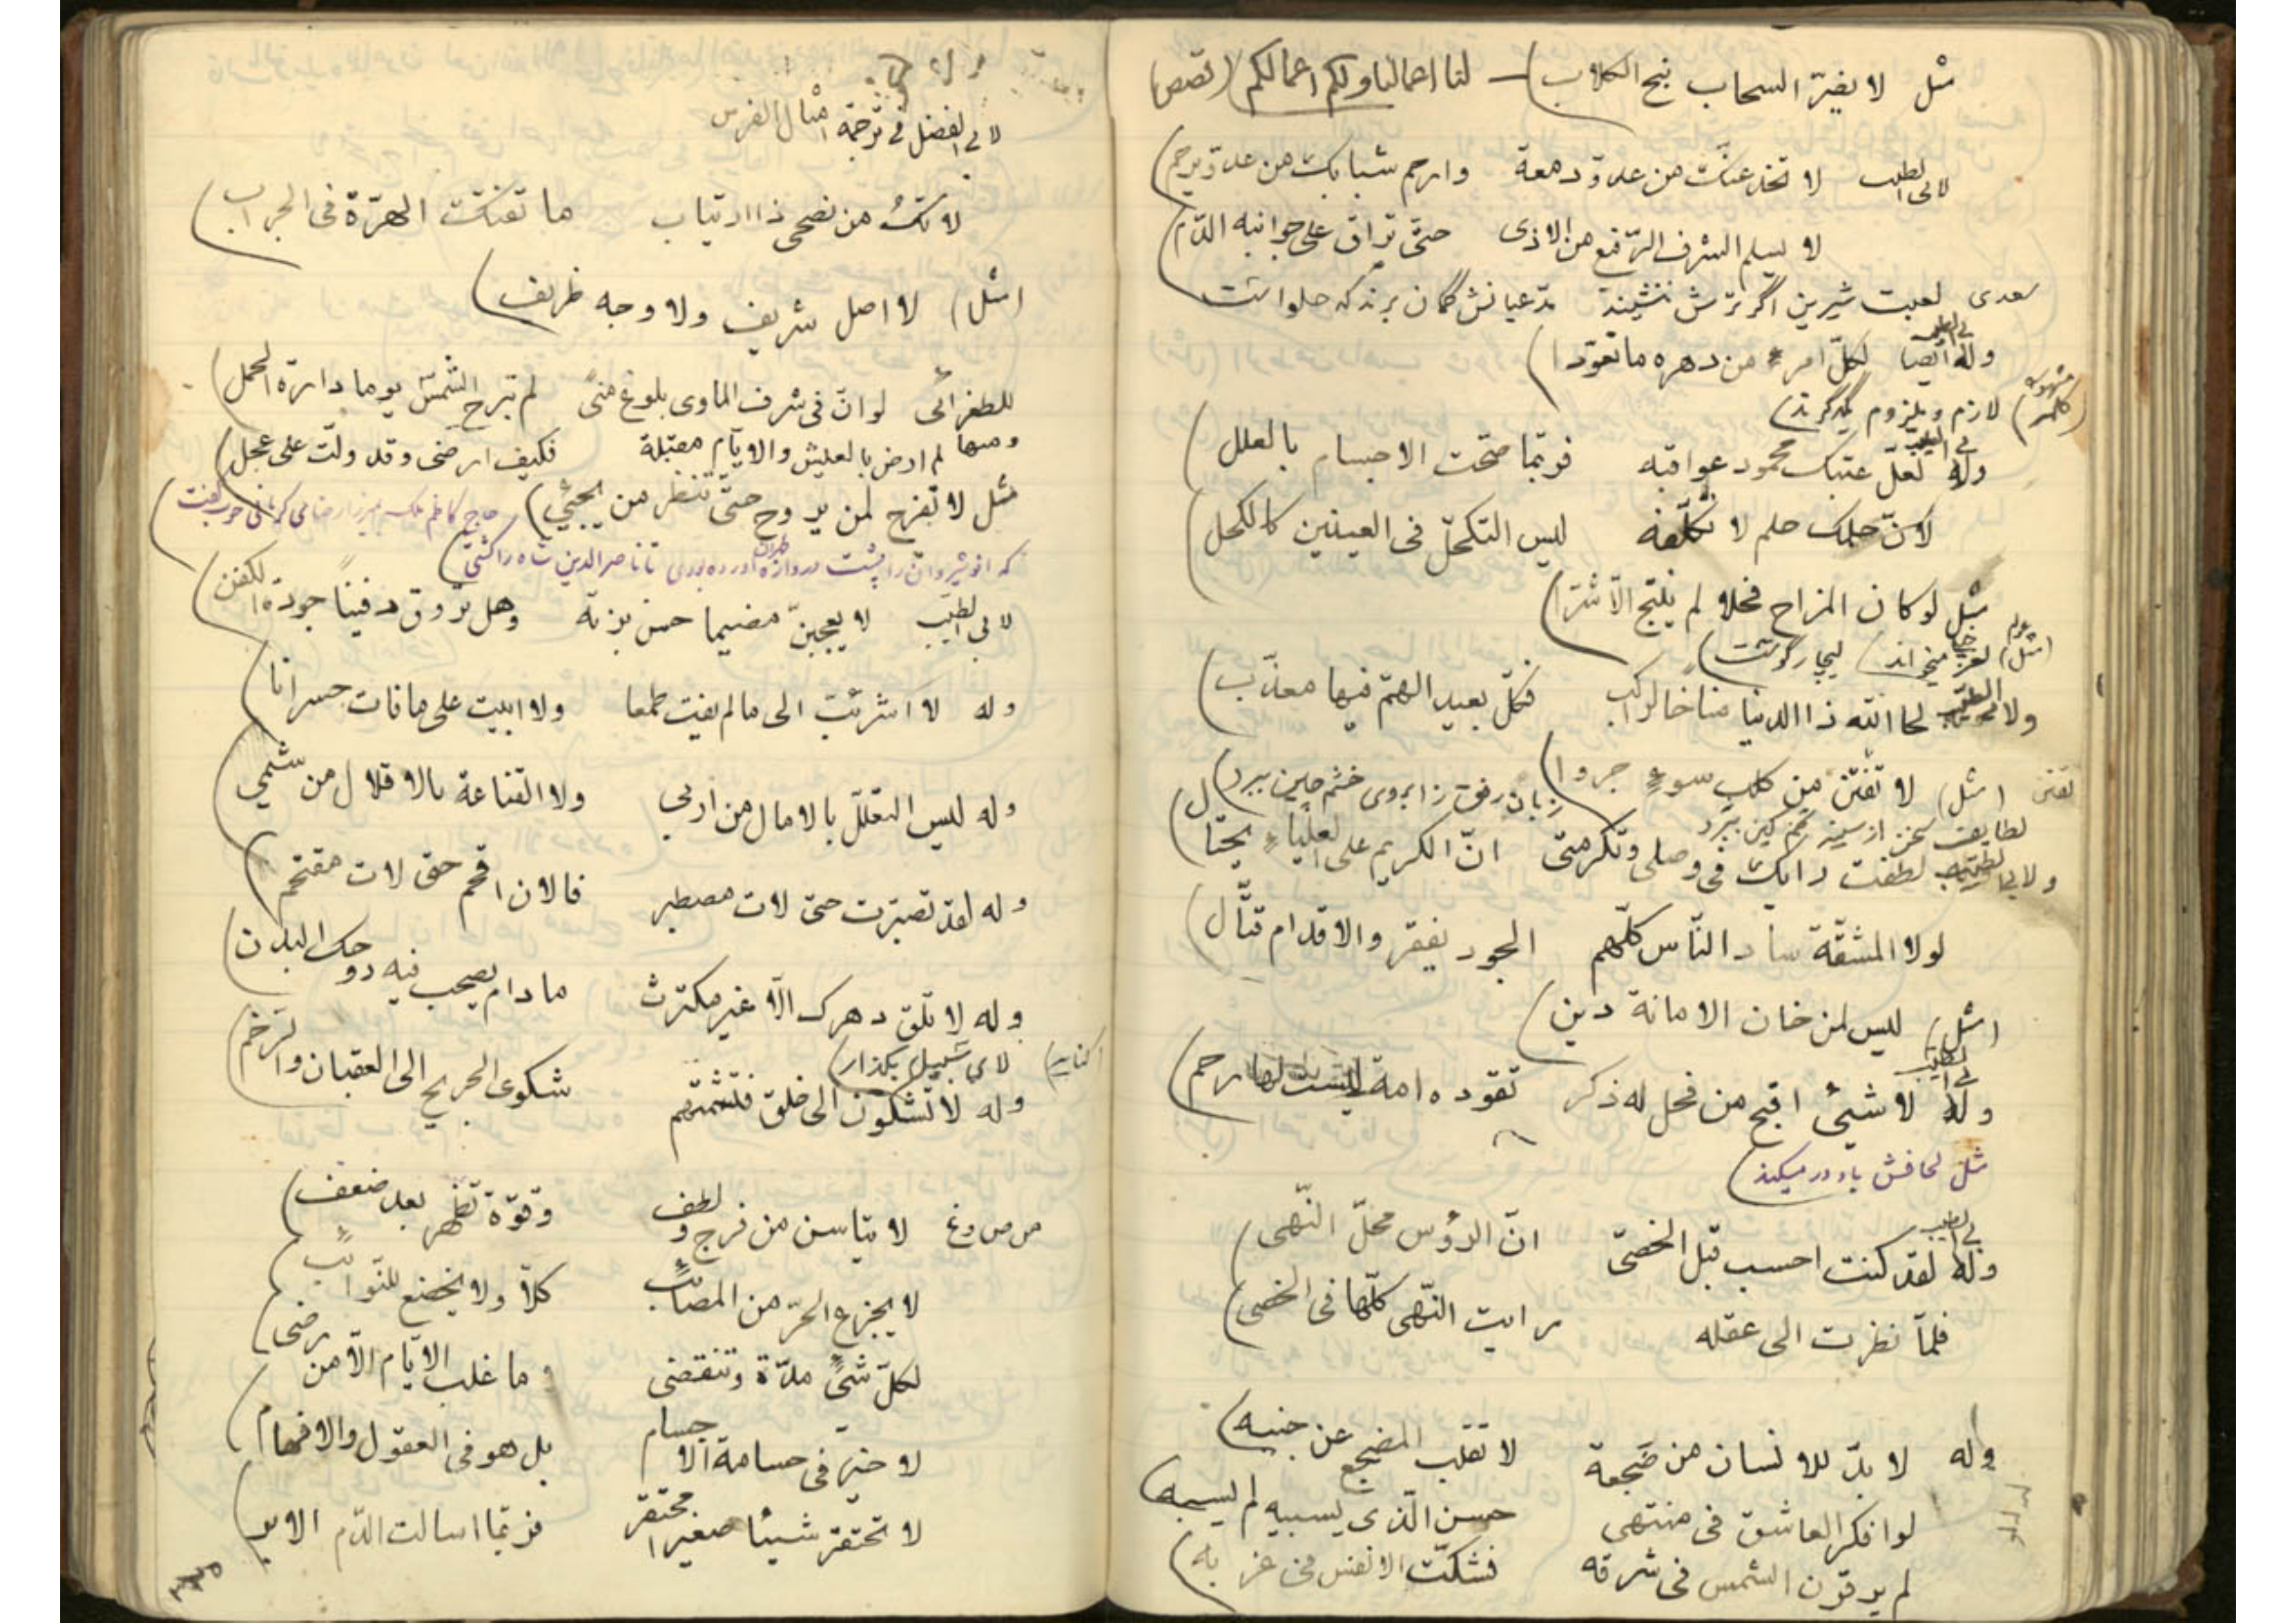 مثل لا يضرّ السحاب نبح الكلاب) — لنا اعمالنا ولكم اعمالكم (قصص)
لابى الطيب لا تخدعنّك من عدوّ دمعة وارحم شبابك من عدوّ يرحم)
لا يسلم الشرف الرّفيع من الاذى حتّى يراق على جوانبه الدّم)
سعدى لعبت شيرين اگر ترش ننشيند مدّعيانش گمان برند كه حلواست
وله ايضا لابى الطيب لكلّ امرءٍ من دهره ما تعوّدا)
لازم و ملزوم يكديگرند)
وله لابى الطيب لعلّ عتبك محمود عواقبه فربّما صحّت الاجسام بالعلل)
لانّ حلمك حلم لا تكلّفه ليس التكحّل فى العينين كالكحل)
مثل لو كان المزاح فحلا لم ينتج الّا شرّا)
ولابى الطيب لحا الله ذا الدنيا مناخا لراكب فكلّ بعيد الهمّ فيها معذّب)
(مثل) لا تقتن من كلب سوءٍ جروا) زبان رفق ز ابروى خشم چين ببرد)
ولابى الطيب لطفت رايك فى وصلى وتكرمتى انّ الكريم على العلياء يحتال)
لولا المشقّة ساد النّاس كلّهم الجود يفقر والاقدام قتّال)
(مثل) ليس لمن خان الامانة دين)
وله لابى الطيب لا شيئ اقبح من فحل له ذكر تقوده امة ليست لها رحم)
مثل لحافش باد در ميكند)
وله لابى الطيب لقد كنت احسب قبل الخصىّ انّ الرؤس محلّ النّهى)
فلمّا نظرت الى عقله رايت النّهى كلّها فى الخصى)
وله لا بدّ للانسان من ضجعة لا تقلب المضجع عن جنبه)
لو افكر العاشق فى منتهى حسن الّذى يسبيه لم يسبه)
لم ير قرن الشمس فى شرقه فشكّت الانفس فى غربه)
لابى الفضل فى ترجمة امثال الفرس
لا تك من نصحى ذا ارتياب ما تقتك الهرّة فى الجراب)
(مثل) لا اصل شريف ولا وجه ظريف)
للطغرائى لو انّ فى شرف الماوى بلوغ منىً لم تبرح الشمس يوما دارة الحمل)
ومنها لم ارض بالعيش والايّام مقبلة فكيف ارضى وقد ولّت على عجل)
مثل لا تفرح لمن يروح حتّى تنظر من يجيئ)
كه انوشيروان را پشت دروازه طهران آورده بودى تا ناصر الدين شاه را كشتى)
لابى الطيّب لا يعجبنّ مضيما حسن بزته وهل تروق دفيناً جودة الكفن)
وله لا اشرئبّ الى ما لم يفت طمعا ولا ابيت على ما فات حسرانا)
وله ليس التعلّل بالامال من اربى ولا القناعة بالاقلال من شيمى)
وله لقد تصبّرت حتى لات مصطبر فالان اقحم حتى لات مقتحم)
وله لا تلق دهرك الّا غير مكترث ما دام يصحب فيه روحك البدن)
لاى سبيل بگذار)
وله لا تشكون الى خلق فتشمتهم شكوى الجريح الى العقبان والرّخم)
لا تياسن من فرج ولطف وقوّة تظهر بعد ضعف)
لا يجزع الحرّ من المصائب كلّا ولا يخضع للنّوائب)
لكلّ شئً مدّة وتنقضى ما غلب الايّام الّا من رضى)
لا خير فى جسامة الاجسام بل هو فى العقول والافهام)
لا تحتقر شيئا صغيرا محتقر فربّما اسالت الدّم الابر)